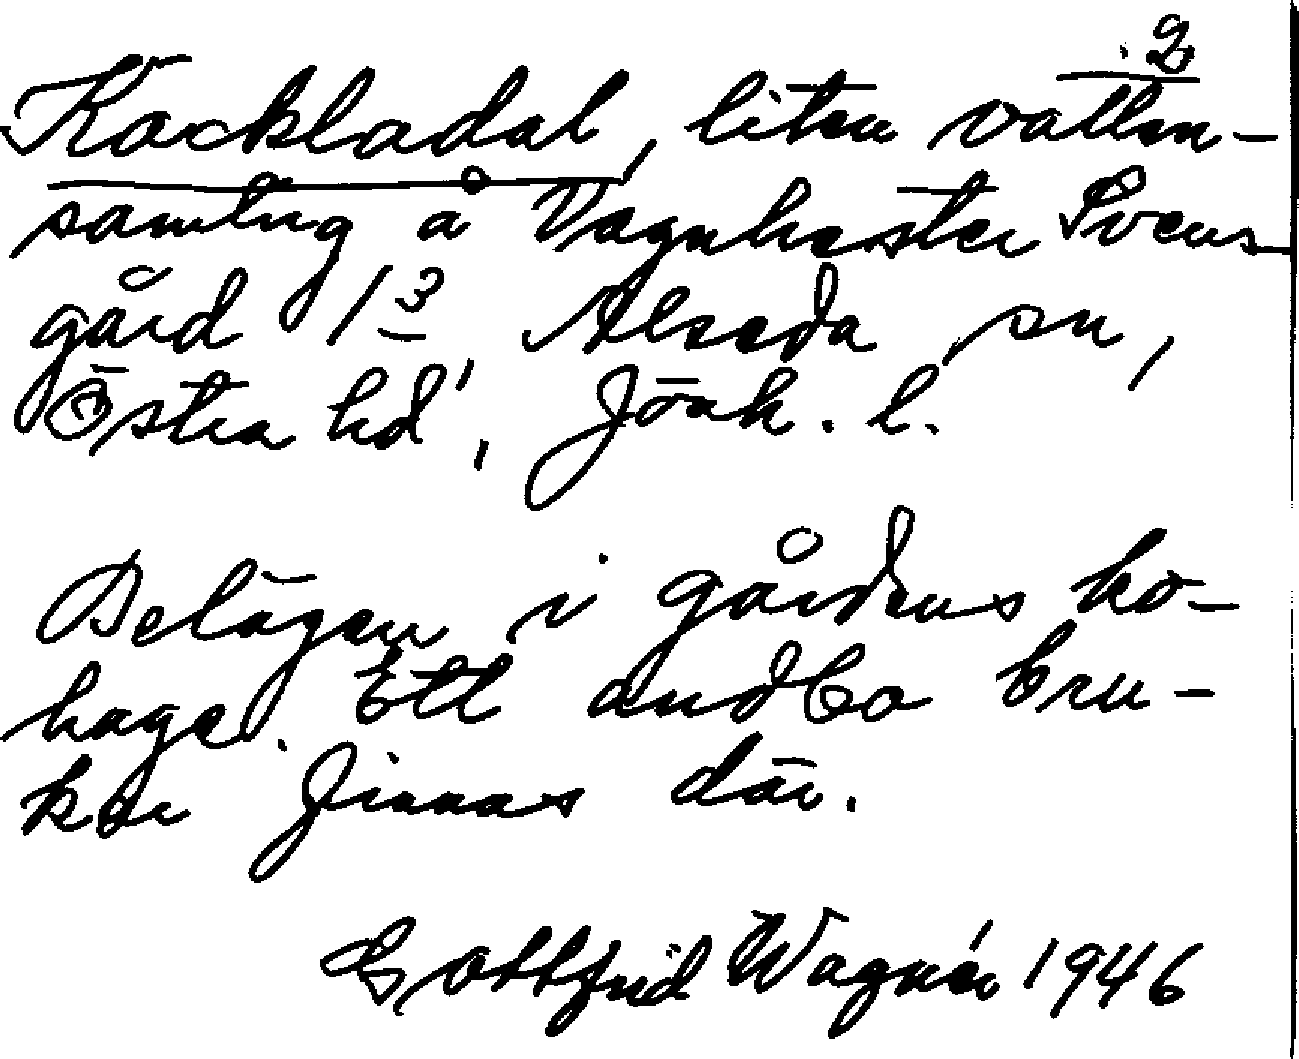 2
Kackladal, liten vatten-
samlng å Vagnhester Svens
gård 1 3, Alseda sn,
Östra hd, Jönk. l.
Belägen i gårdens ko-
hage. Ett andbo bru-
kar finnas där.
Gottfrid Wagnér 1946